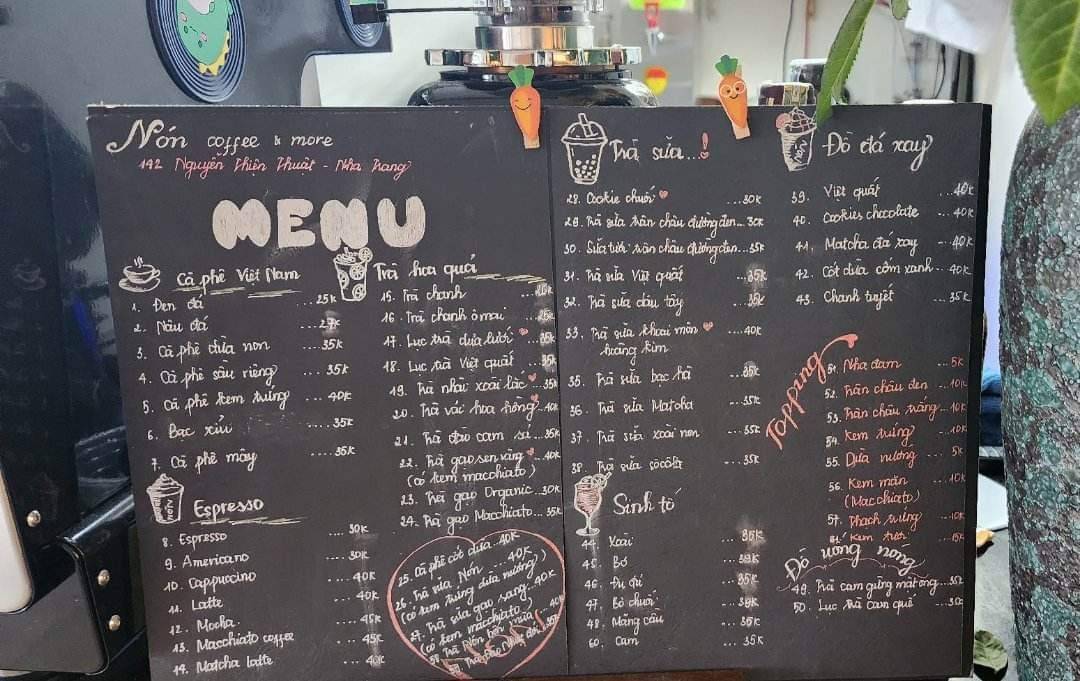 Nón coffee & more
142 Nguyễn Thiện Thuật - Nha Trang
MENU
Cà phê Việt Nam
1. Đen đá ...25K
2. Nâu đá ...27K
3. Cà phê dừa non ...35K
4. Cà phê sầu riêng ...35K
5. Cà phê kem trứng ...40K
6. Bạc xỉu ...35K
7. Cà phê máy ...35K
Espresso
8. Espresso ...30K
9. Americano ...30K
10. Cappuccino ...40K
11. Latte ...40K
12. Mocha ...45K
13. Macchiato coffee ...45K
14. Matcha latte ...40K
Trà hoa quả
15. Trà chanh
16. Trà chanh ô mai
17. Lục trà dưa lưới ...35K
18. Lục trà Việt quất ...35K
19. Trà nhài xoài lắc ...35K
20. Trà vải hoa hồng ...40K
21. Trà đào cam sả ...35K
22. Trà gạo sen vàng ...40K
(có kem macchiato)
23. Trà gạo Organic ...30K
24. Trà gạo Macchiato ...35K
25. Cà phê cốt dừa ...40K
26. Trà sữa Nón ...40K
(có kem trứng dừa nướng)
27. Trà sữa gạo rang ...40K
(có kem macchiato)
Trà sữa...!
28. Cookie chuối ...30K
29. Trà sữa trân châu đường đen ...30K
30. Sữa tươi trân châu đường đen ...35K
31. Trà sữa Việt quất ...35K
32. Trà sữa dâu tây ...35K
33. Trà sữa khoai môn ...40K
hoàng kim
35. Trà sữa bạc hà ...35K
36. Trà sữa Matcha ...35K
37. Trà sữa xoài non ...35K
38. Trà sữa socola ...35K
Sinh tố
44. Xoài ...35K
45. Bơ
46. Đu đủ ...35K
47. Bơ chuối
48. Mãng cầu ...35K
60. Cam ...35K
Đồ đá xay
39. Việt quất ...40K
40. Cookies chocolate ...40K
41. Matcha đá xay ...40K
42. Cốt dừa cốm xanh ...40K
43. Chanh tuyết ...35K
Topping
51. Nha đam ...5K
52. Trân châu đen ...10K
53. Trân châu trắng ...10K
54. Kem trứng ...10K
55. Dừa nướng ...5K
56. Kem mặn ...10K
(Macchiato)
57. Thạch trứng ...10K
Kem tươi ...15K
Đồ uống nóng
49. Trà cam gừng mật ong ...35K
50. Lục trà cam quế ...30K